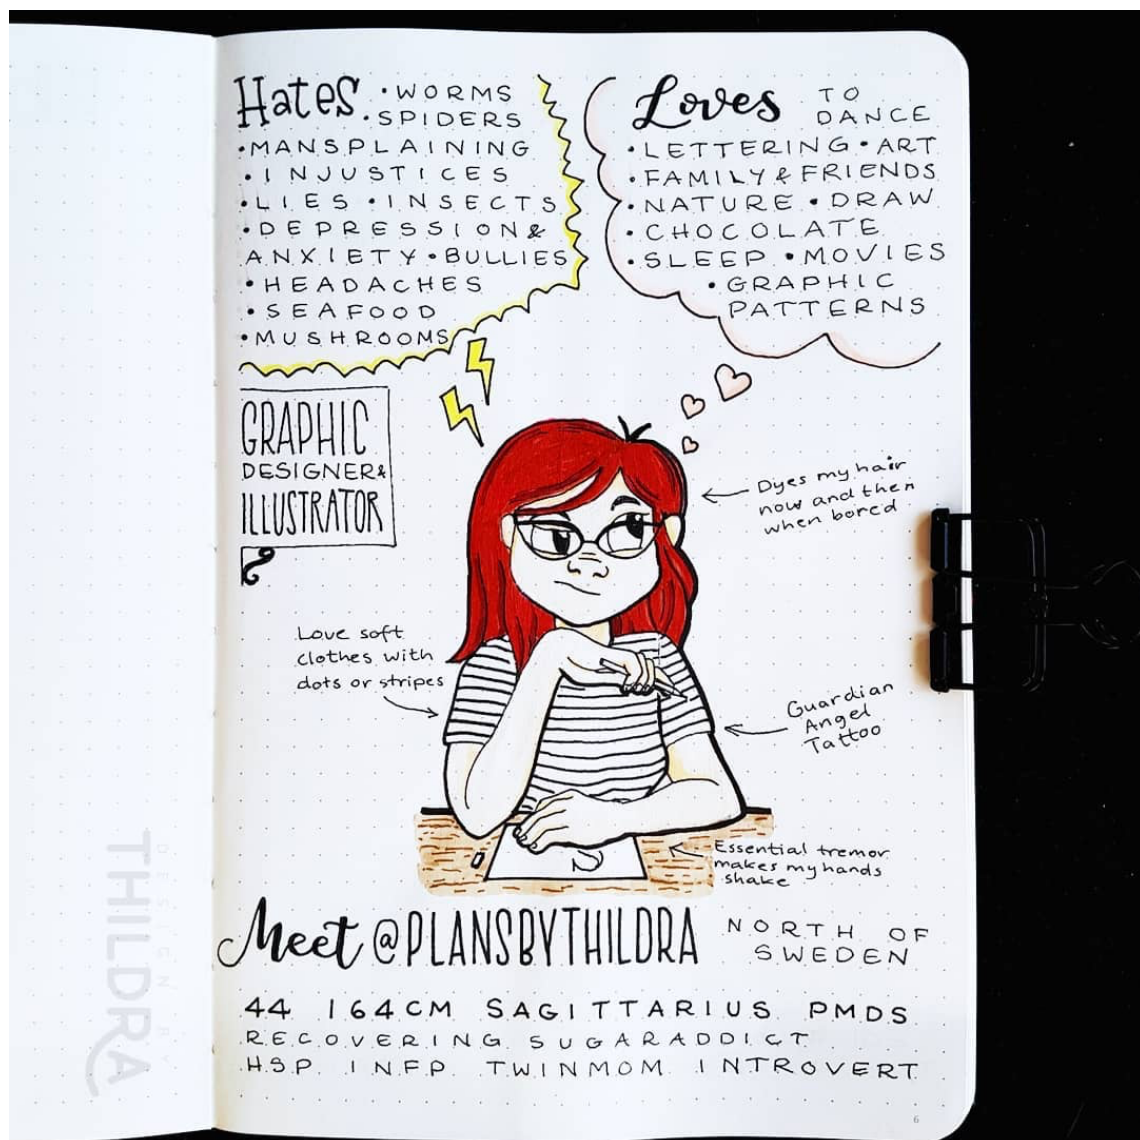 Hates • WORMS
• SPIDERS
• MANSPLAINING
• INJUSTICES
• LIES • INSECTS
• DEPRESSION &
ANXIETY • BULLIES
• HEADACHES
• SEAFOOD
• MUSHROOMS
Loves TO
DANCE
• LETTERING • ART
• FAMILY & FRIENDS
• NATURE • DRAW
• CHOCOLATE
• SLEEP • MOVIES
• GRAPHIC
PATTERNS
GRAPHIC
DESIGNER &
ILLUSTRATOR
Dyes my hair
now and then
when bored
Love soft
clothes with
dots or stripes
Guardian
Angel
Tattoo
Essential tremor
makes my hands
shake
Meet @PLANSBYTHILDRA
NORTH OF
SWEDEN
44 164CM SAGITTARIUS PMDS
RECOVERING SUGARADDICT
HSP INFP TWINMOM INTROVERT
DESIGN BY
THILDRA
6